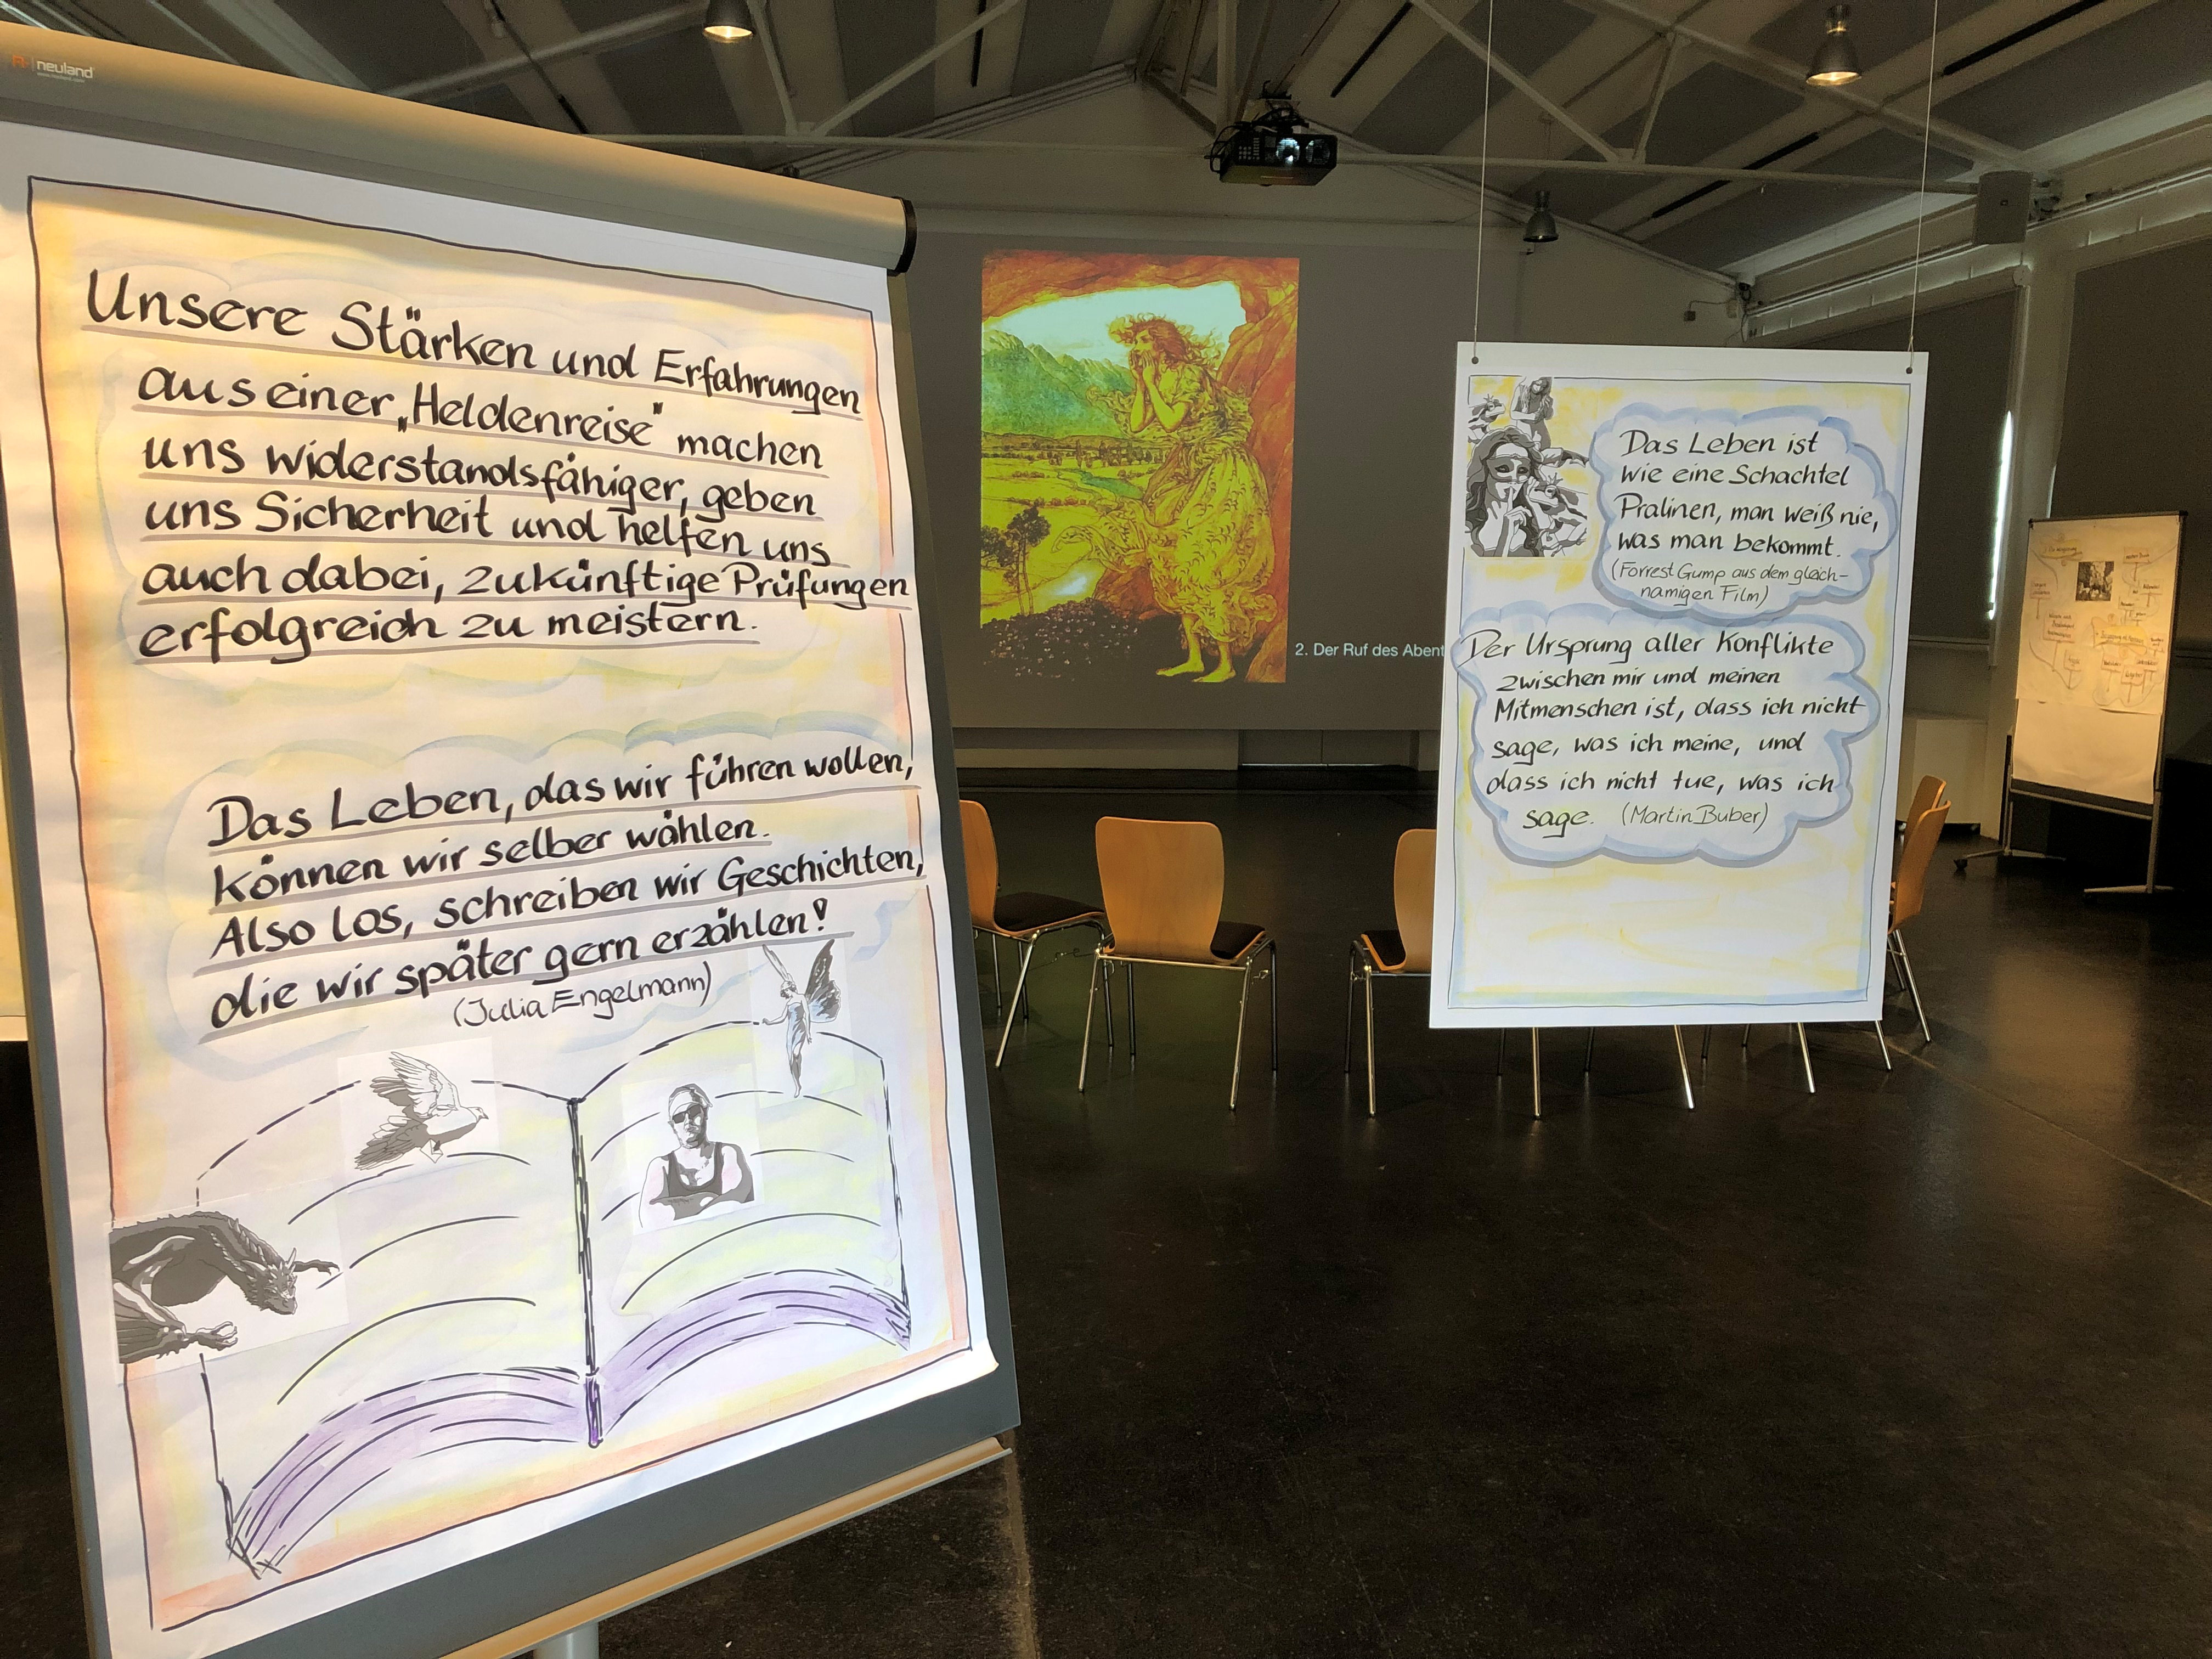 neuland
Unsere Stärken und Erfahrungen
aus einer „Heldenreise" machen
uns widerstandsfähiger, geben
uns Sicherheit und helfen uns
auch dabei, zukünftige Prüfungen
erfolgreich zu meistern.
Das Leben, das wir führen wollen,
können wir selber wählen.
Also los, schreiben wir Geschichten,
die wir später gern erzählen!
(Julia Engelmann)
2. Der Ruf des Abent
Das Leben ist
wie eine Schachtel
Pralinen, man weiß nie,
was man bekommt.
(Forrest Gump aus dem gleich-
namigen Film)
Der Ursprung aller Konflikte
zwischen mir und meinen
Mitmenschen ist, dass ich nicht
sage, was ich meine, und
dass ich nicht tue, was ich
sage. (Martin Buber)